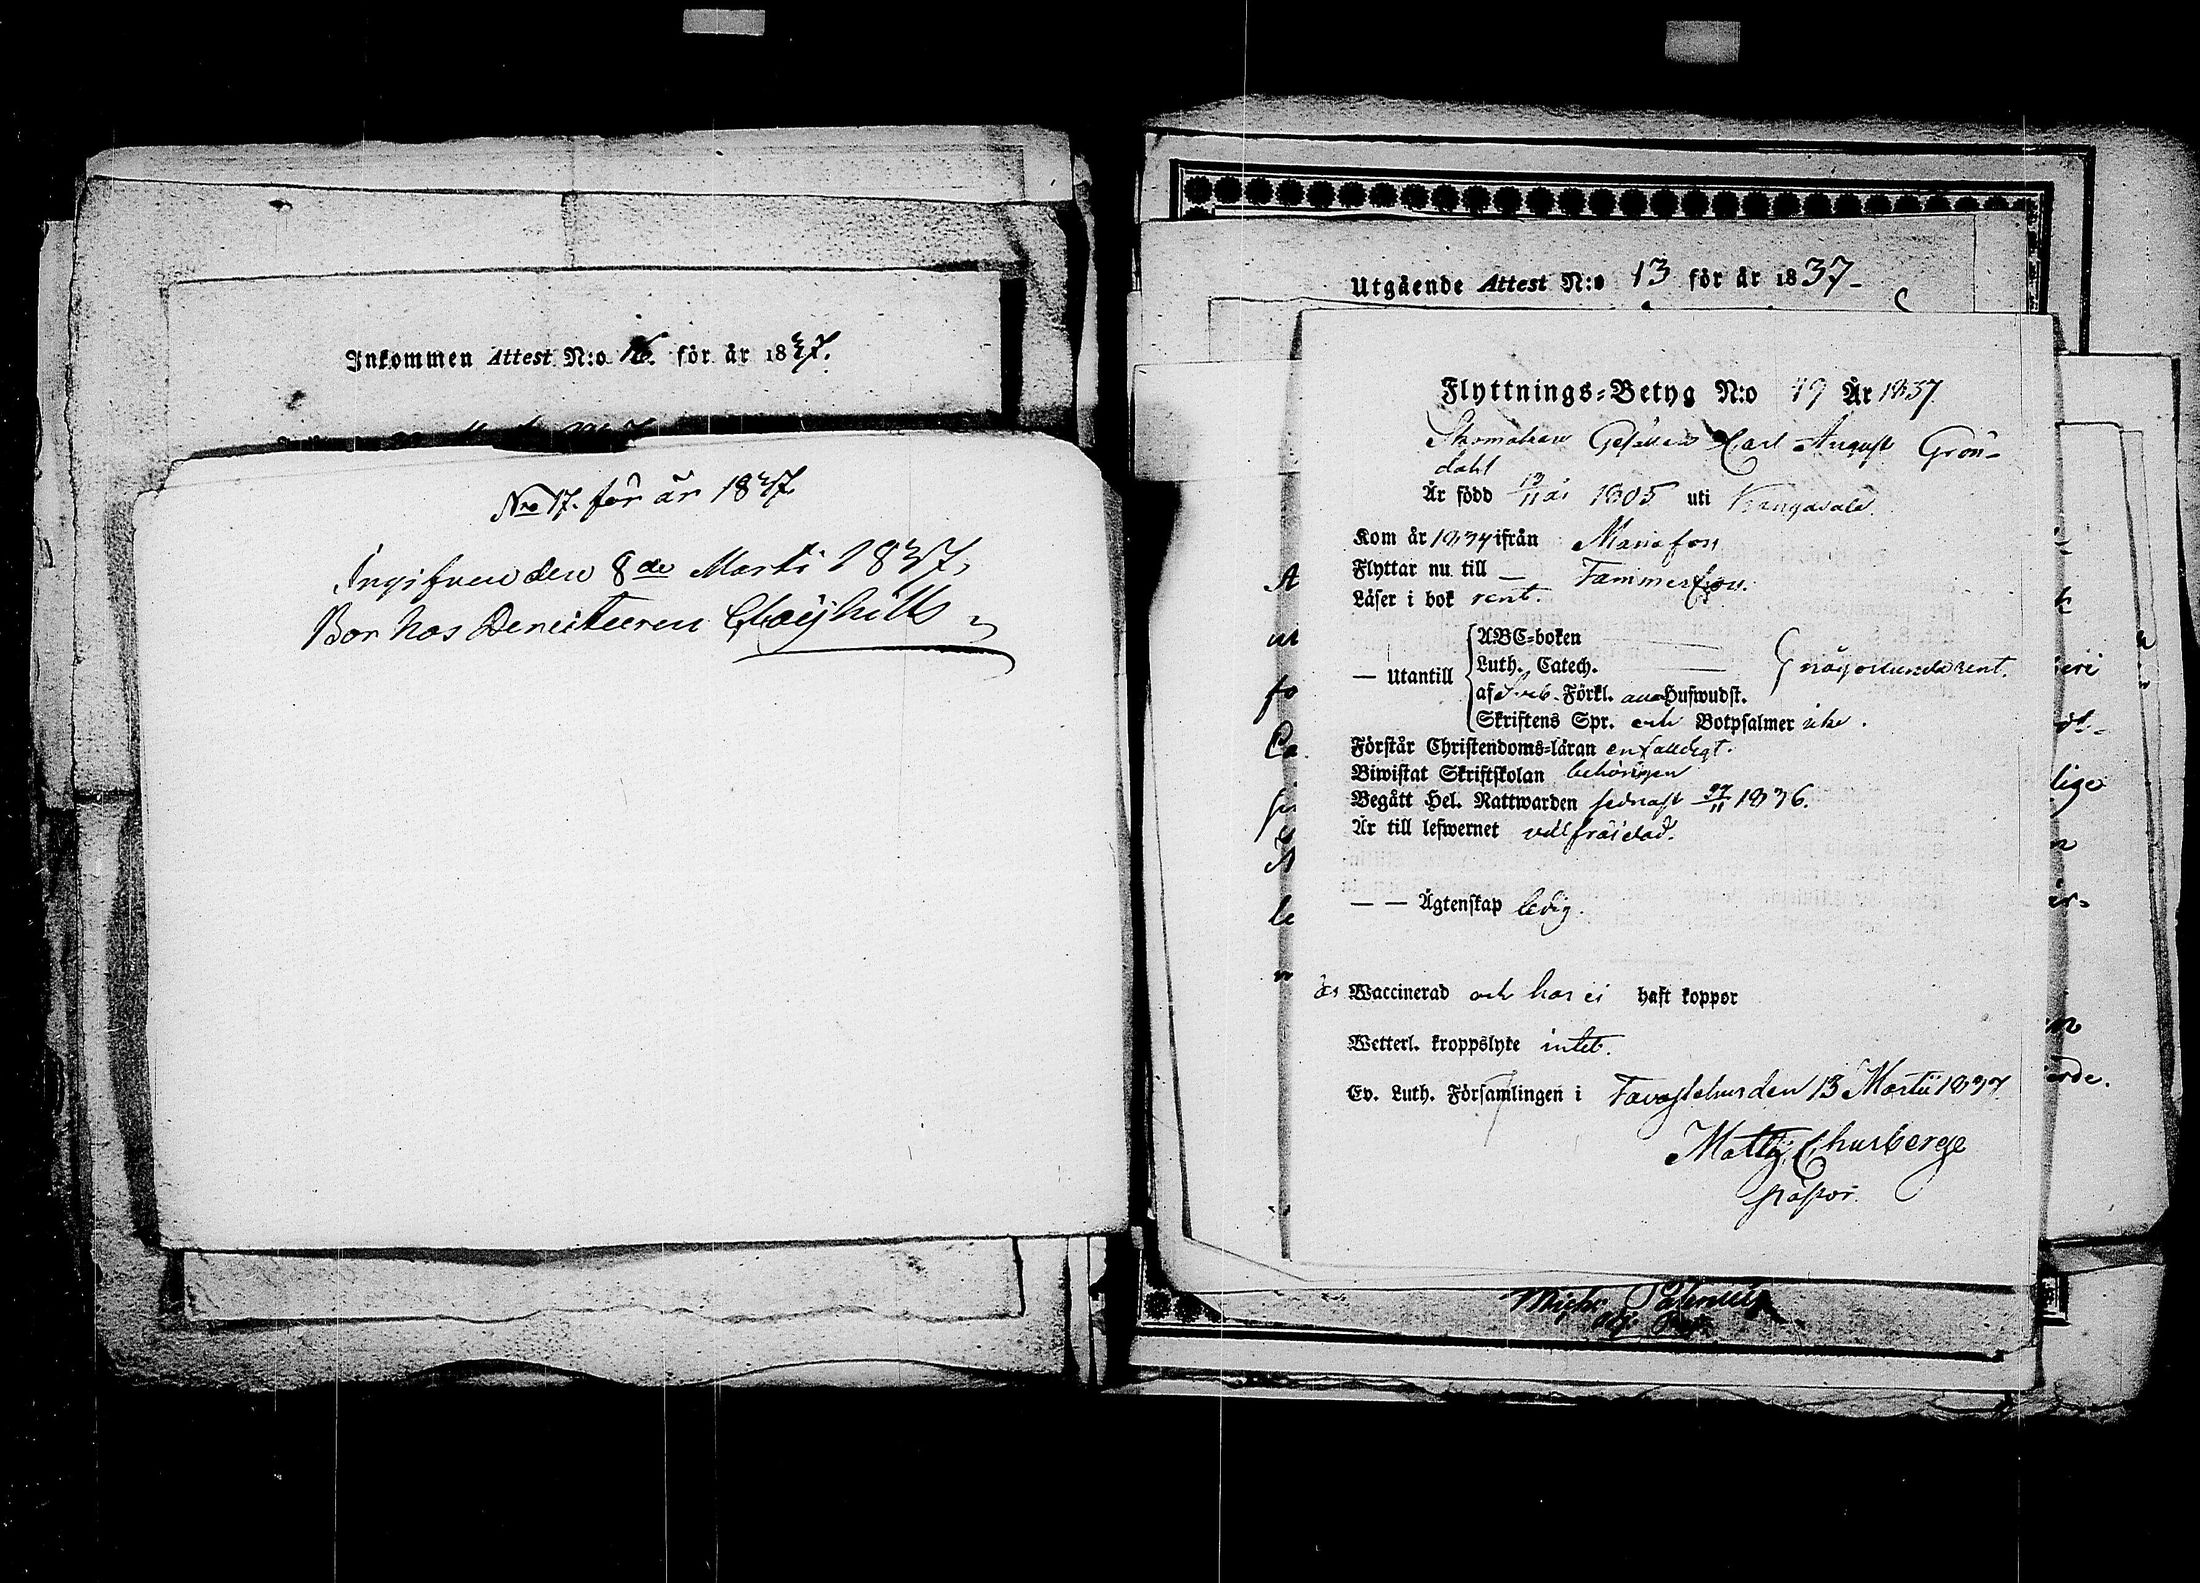 Inkommen Attest N:o 16. för år 1837.
No 17. för år 1837
Ingifven den 8de Marti 1837,
Bor hos
Utgående Attest N:o 13 för år 1837
Flyttnings-Betyg N:o 49 År 1837
Skomakare Gesällen Carl August Grön-
dahl
Är född 13/11 år 1805 uti Kangasala
Kom år 1834 ifrån Mariefors
Flyttar nu till — Tammerfors.
Läser i bok rent.
— Utantill
ABC-boken
Luth. Catech. någorlunda rent.
af Sveb. Förkl. Hufwudst.
Skriftens Spr. och Botpsalmer icke.
Förstår Christendoms-läran enfaldigt.
Biwistat Skriftskolan behörigen
Begått Hel. Nattwarden sednast 27/11 1836.
Är till lefwernet välfräjdad.
— — Ägtenskap ledig.
är Waccinerad och har ej haft koppor
Wetterl. kroppslyte intet.
Ev. Luth. Församlingen i Tavastehus den 13 Martii 1837
Matth. Churberg
pastor.